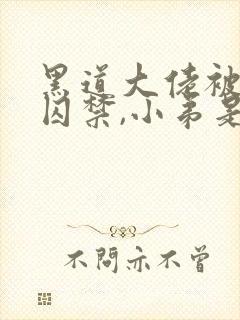 黑道大佬被
囚禁,小弟是
不問亦不曾